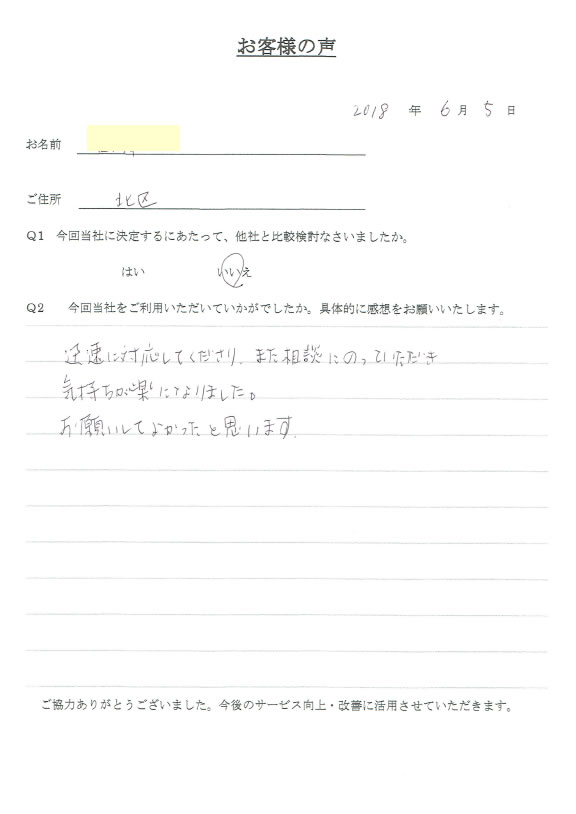 お客様の声
2018 年 6 月 5 日
お名前
ご住所 北区
Q1 今回当社に決定するにあたって、他社と比較検討なさいましたか。
はい いいえ
Q2 今回当社をご利用いただいていかがでしたか。具体的に感想をお願いいたします。
迅速に対応してくださり、また相談にのっていただき
気持ちが楽になりました。
お願いしてよかったと思います。
ご協力ありがとうございました。今後のサービス向上・改善に活用させていただきます。